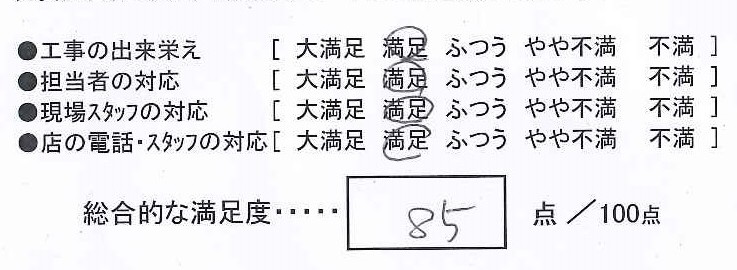 ●工事の出来栄え [ 大満足 満足 ふつう やや不満 不満 ]
●担当者の対応 [ 大満足 満足 ふつう やや不満 不満 ]
●現場スタッフの対応 [ 大満足 満足 ふつう やや不満 不満 ]
●店の電話・スタッフの対応 [ 大満足 満足 ふつう やや不満 不満 ]
総合的な満足度・・・・・ 85 点 ／100点